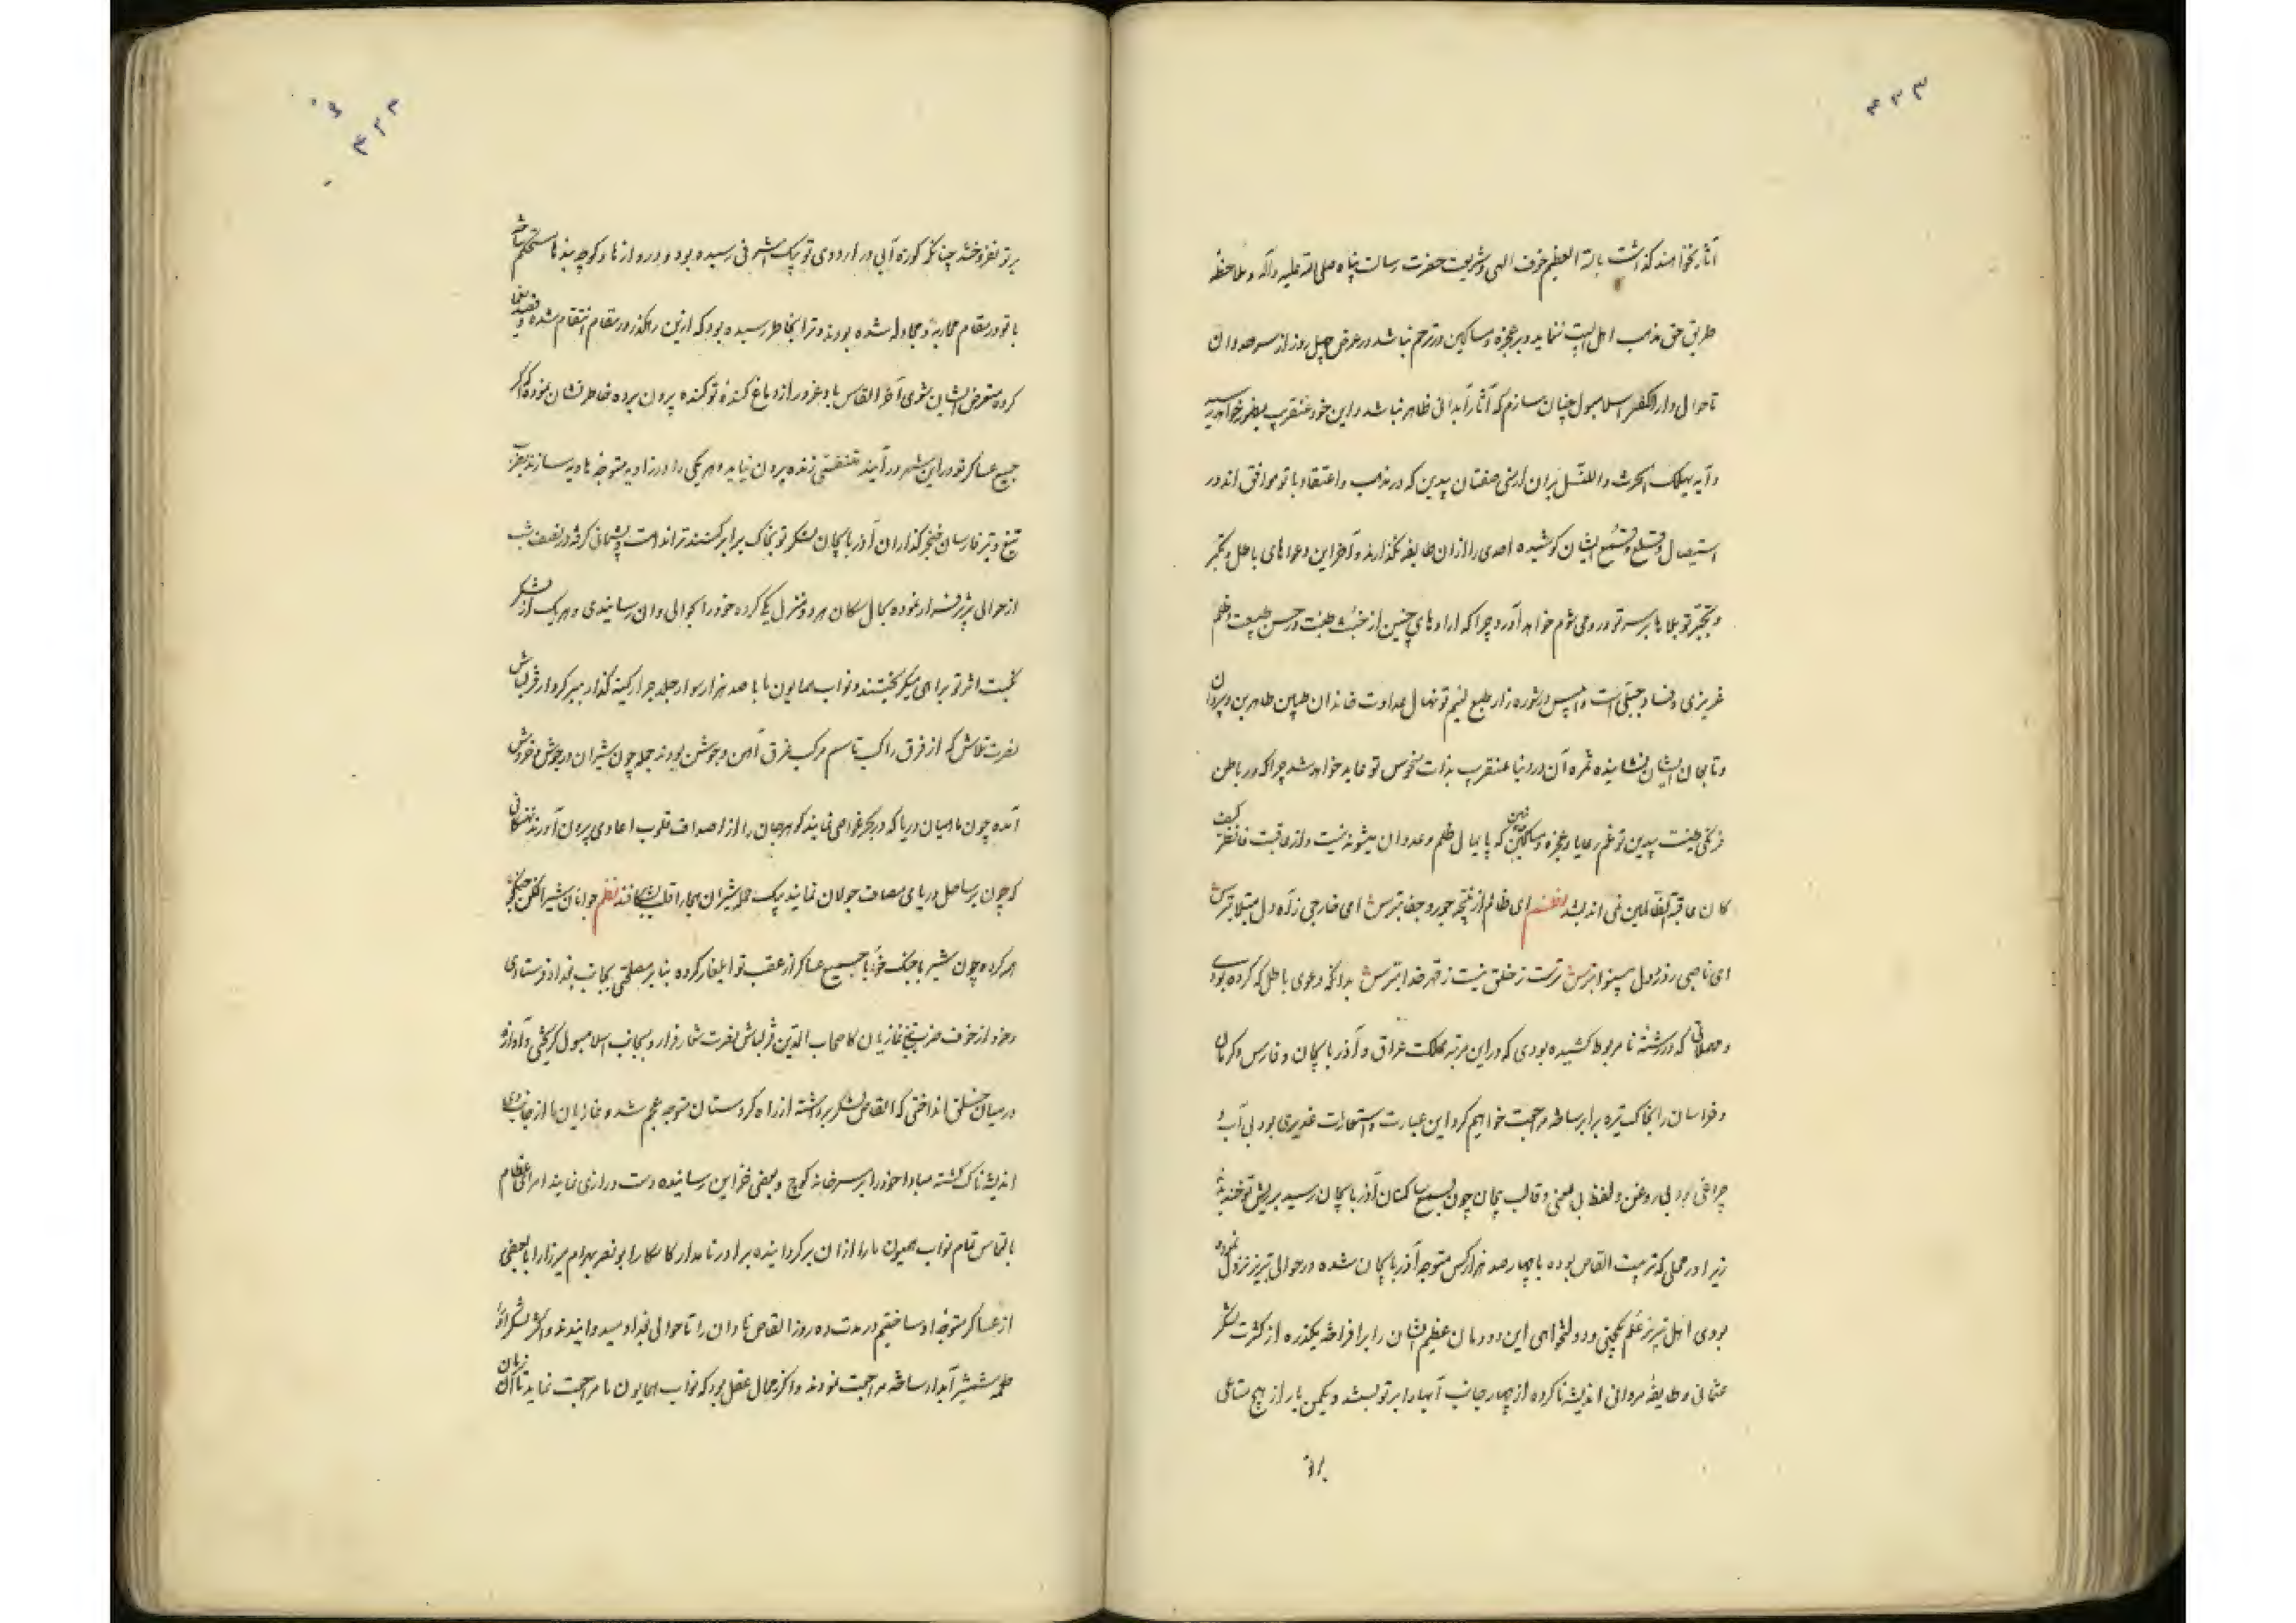 ۴۳۳
آثار نخواهند گذاشت بالله العظیم خوف الهی و شریعت حضرت رسالت پناه صلی الله علیه و آله و ملاحظه
طریق حق مذهب اهل البیت ننماید و بر عجزه و مساکین در ترحم نباشد در عرض چهل روز از سرحد وان
تا حوالی دار الکفر اسلامبول چنان سازم که آثار آبدانی ظاهر نباشد و این خود عنقریب بظهور خواهد
و آیه یهلک الحرث و النسل بر آن ارمنی صفتان بیدین که در مذهب و اعتقاد با تو موافق اند در
استیصال و قلع و قمع ایشان کوشیده احدی را از آن طایفه نگذارند و آخر این دعواهای باطل و تکبر
و تجبر تو بلاها بر سر تو و رومی شوم خواهد آورد چرا که اراده‌های چنین از خبث طینت و طبیعت و ظلم
غریزی و فساد جبلی است و ابلیس در شوره زار طبع لئیم تو نهال عداوت خاندان طیبین طاهرین و پیروان
و تابعان ایشان نشانیده ثمره آن در دنیا عنقریب بذات منحوس تو عاید خواهد شد چرا که در باطن
فرنگی طینت بیدین تو غم رعایا و عجزه و مساکین که پایمال ظلم و عدوان میشوند نیست و از عاقبت فانظر کیف
کان عاقبة الظالمین نمی اندیشد نظم ای ظالم از نتیجه جور و جفا بترس ای خارجی زآه دل مبتلا بترس
ای ناصبی ز درد دل بینوا بترس ترست ز خلق نیست ز قهر خدا بترس بدانکه دعوی باطل که کرده بودی
و مهملاتی که در رشته نامربوط کشیده بودی که در این مرتبه مملکت عراق و آذربایجان و فارس و کرمان
و خراسان را بخاک تیره برابر ساخته مراجعت خواهیم کرد این عبارت و استعارت غدیری بود بی آب و
چراغی بود بی روغن و لفظ بی معنی و قالب بیجان چون بسمع ساکنان آذربایجان رسید بریش تو خندیدند
زیرا در محلی که تربیت القاص بوده با چهار صد هزار کس متوجه آذربایجان شده در حوالی تبریز نزول نموده
بودی اهل تبریز علم یکجهتی و دولتخواهی این دودمان عظیم الشان را برافراخته یکذره از کثرت لشکر
عثمانی و طایفه مروانی اندیشه ناکرده از چهار جانب آبها را بر تو بسته و یکمن بار از هیچ متاعی
بر تو
۴۳۲
بر تو نفروختند چنانکه کوزه آبی در اردوی تو بیک اشرفی رسیده بود و دروازها و کوچه بندها مستحکم ساخته
با تو در مقام محاربه و مجادله شده بودند و ترا بخاطر رسیده بود که ازین رهگذر در مقام انتقام شده و قصد
کرده متعرض ایشان شوی آخر القاس باد غرور از دماغ گنده تو گنده بیرون برده خاطر نشان نموده که اگر
جمیع عساکر تو در این شهر در آیند متنفسی زنده بیرون نیاید و هر یکی را در زاویه متوجه هاویه سازند بضرب
تیغ و تیر فارسان خنجر گذاران آذربایجان لشکر تو بخاک برابر کنند ترا ندامت و پشیمانی گرفته در نصف شب
از حوالی تبریز فرار نموده بحال سگان هر دو منزل یکی کرده خود را بحوالی وان رسانیدی و هر یک از لشکر
نکبت اثر تو براهی میگریختند و نواب همایون ما با صد هزار سوار جمله جرار کینه گذار نبرد کردار قزلباش
نصرت تلاش که از فرق راکب تا سم مرکب غرق آهن و جوشن بودند جمله چون شیران در جوش و خروش
آمده چون ماهیان دریا که در بحر غواصی نمایند گوهر جان را از اصداف قلوب اعادی بیرون آورند نهنگانی
که چون بر ساحل دریای مصاف جولان نمایند بیک حمله شیران هیجا را قلب بشکافند نظم جوانان شیر افکن جنگجو
همه کرده چون شیر با جنگ خو با جمیع عساکر از عقب تو ایلغار کرده بنا بر مصلحتی بجانب بغداد فرستادی
و خود از خوف ضرب تیغ غازیان کاصحاب الدین قزلباش نصرت شعار فرار و بجانب اسلامبول گریختی و آوازه
در میان خلق انداختی که القاص لشکر برداشته از راه کردستان متوجه عجم شد و غازیان ما از جانب وی
اندیشه ناک گشته مبادا خود را بر سر خانه کوچ و بعضی خزاین رسانیده دست درازی نمایند امرای عظام
بالتماس تمام نواب همیون ما را از آن برگردانیده برادر نامدار کامکار ابو نصر بهرام میرزا را با بعضی
از عساکر متوجه او ساختیم در مدت ده روز القاص نادان را تا حوالی بغداد میدوانیدند و اکثر لشکر او را
طعمه شمشیر آبدار ساخته مراجعت نمودند و اگر بمجال عقل بود که نواب همایون ما مراجعت نماید تا آن زمان